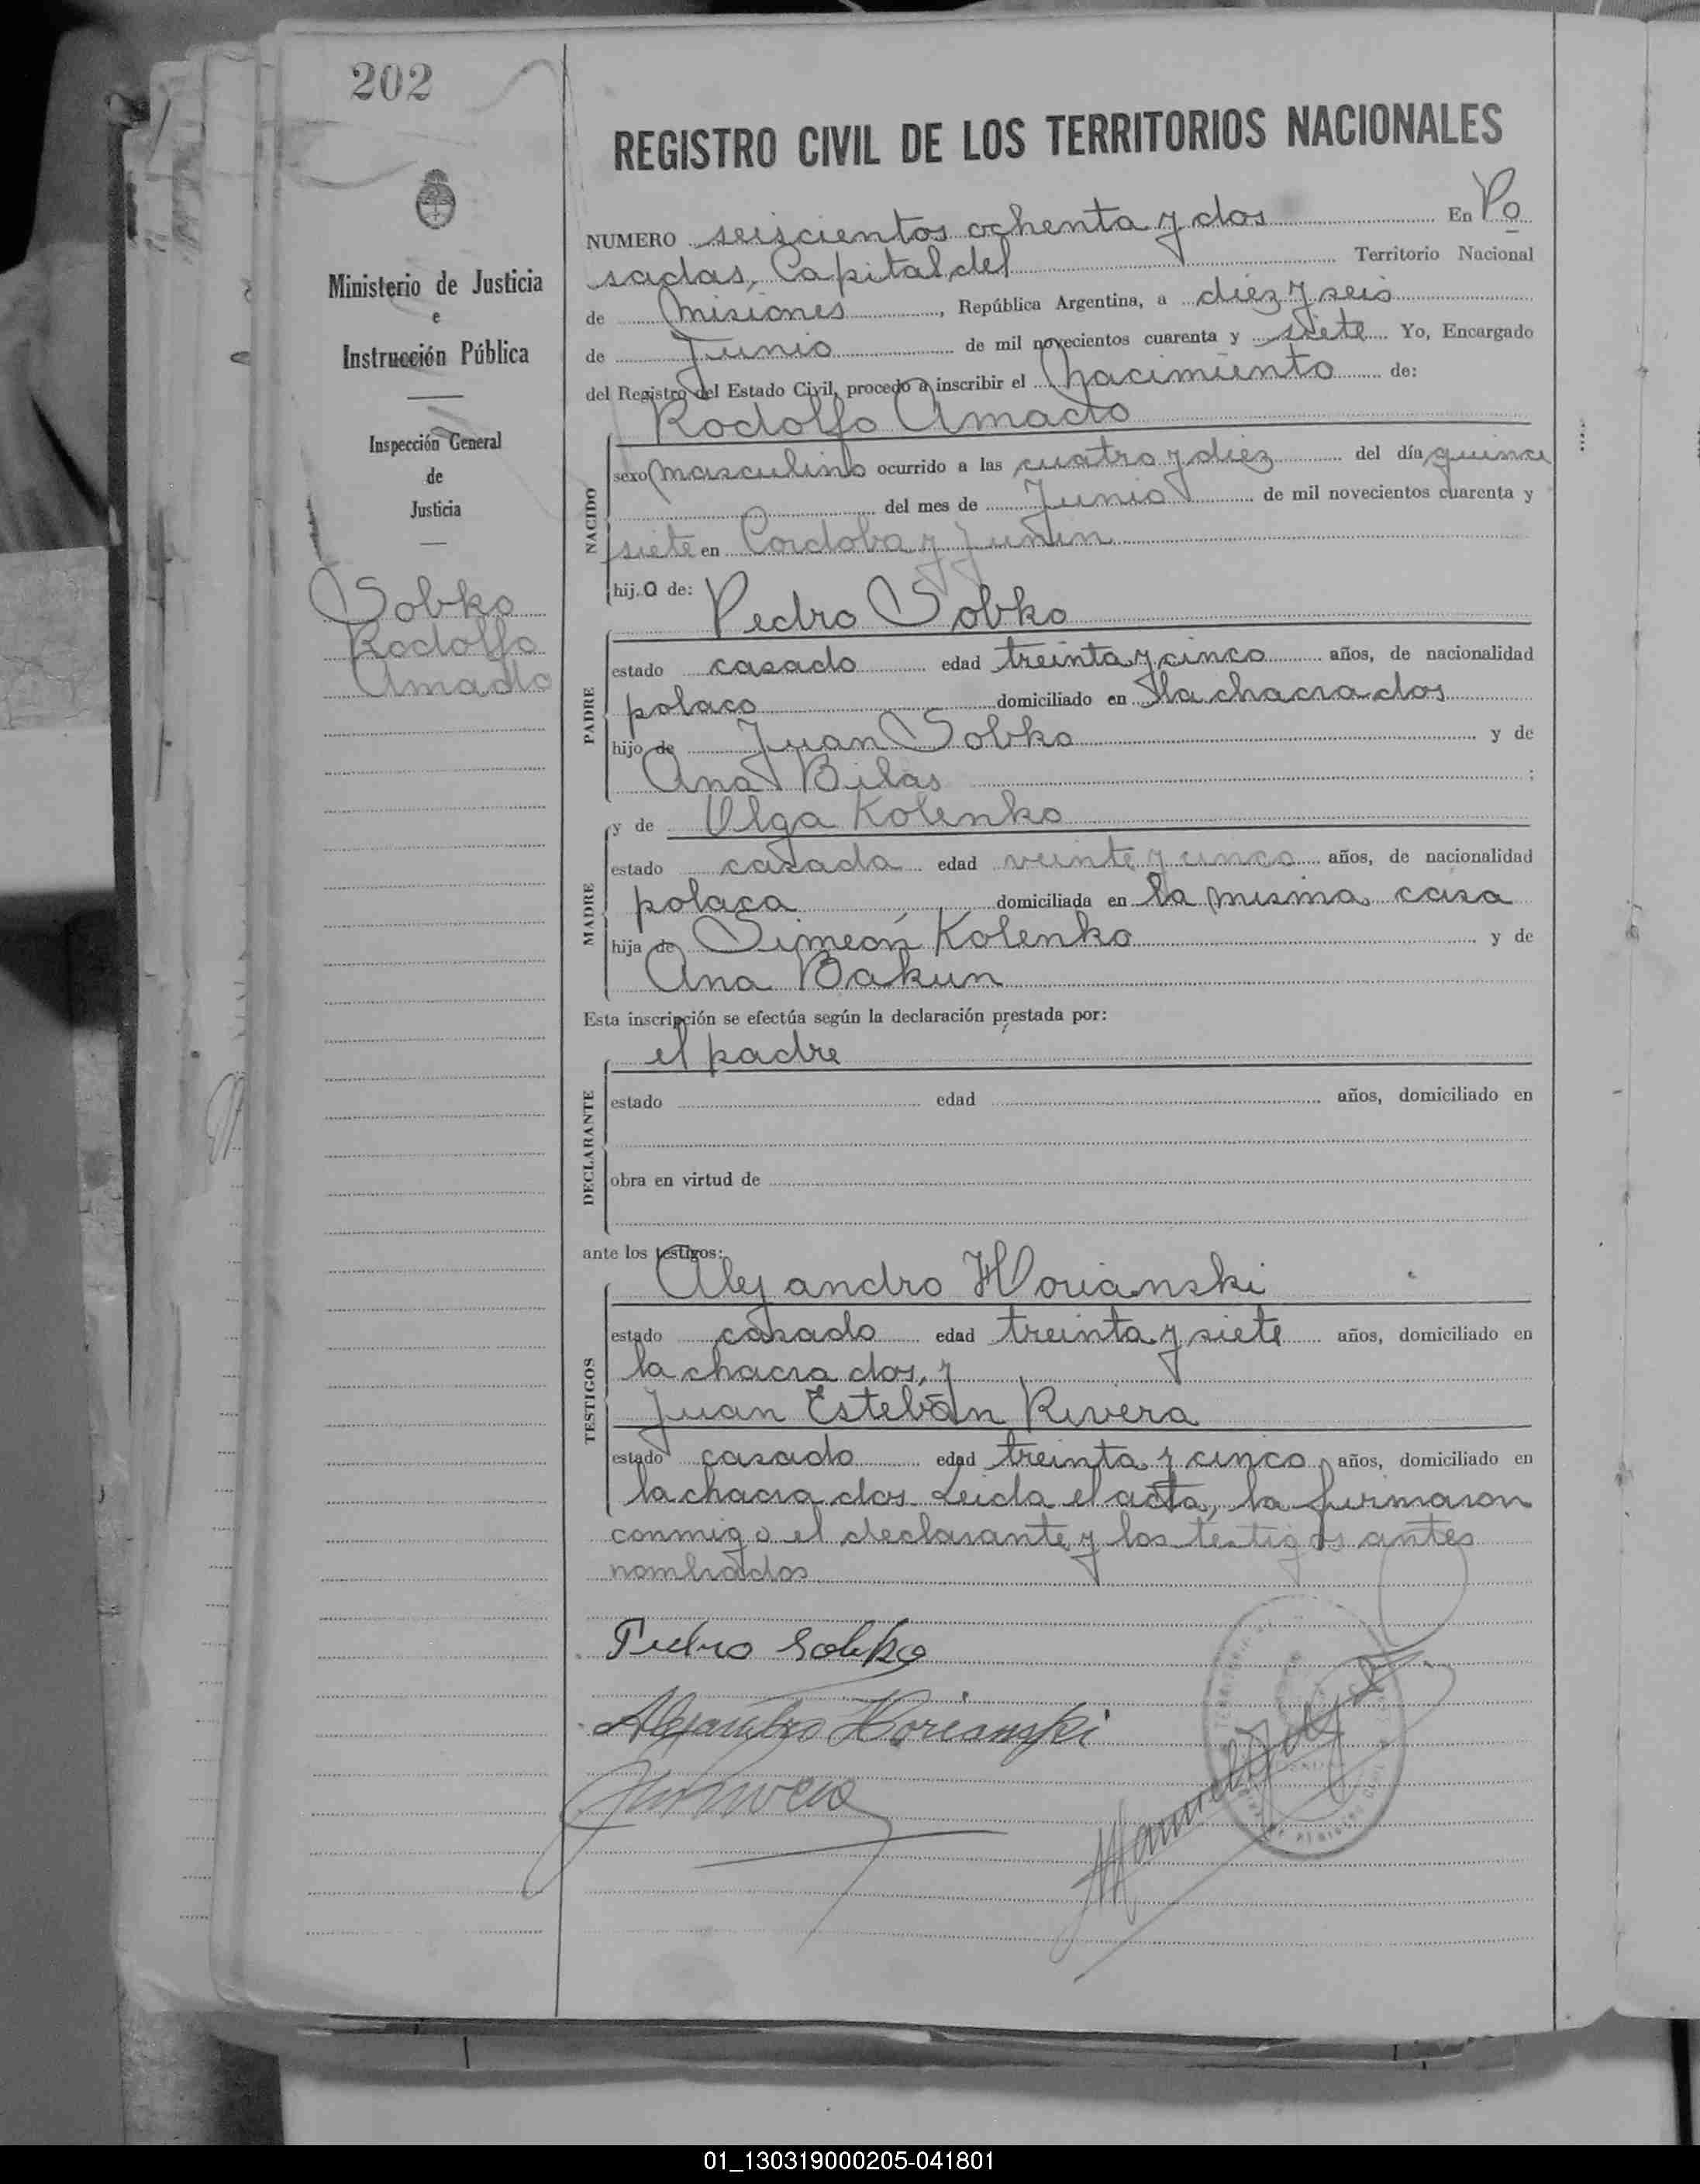 202
REGISTRO CIVIL DE LOS TERRITORIOS NACIONALES
Ministerio de Justicia
e
Instrucción Pública
Inspección General
de
Justicia
Sobko
Rodolfo
Amado
NUMERO seiscientos ochenta y dos En Po
sadas, Capital del Territorio Nacional
de Misiones, República Argentina, a diez y seis
de Junio de mil novecientos cuarenta y siete Yo, Encargado
del Registro del Estado Civil, procedo a inscribir el Nacimiento de:
Rodolfo Amado
NACIDO
sexo masculino ocurrido a las cuatro y diez del día quince
del mes de Junio de mil novecientos cuarenta y
siete en Cordoba y Junin
hijo de:
Pedro Sobko
PADRE
estado casado edad treinta y cinco años, de nacionalidad
polaco domiciliado en la chacra dos
hijo de Juan Sobko y de
Ana Bilas ;
MADRE
y de Olga Kolenko
estado casada edad veinte y cinco años, de nacionalidad
polaca domiciliada en la misma casa
hija de Simeón Kolenko y de
Ana Bakun
Esta inscripción se efectúa según la declaración prestada por:
DECLARANTE
el padre
estado edad años, domiciliado en
obra en virtud de
ante los testigos:
TESTIGOS
Alejandro Horianski
estado casado edad treinta y siete años, domiciliado en
la chacra dos, y
Juan Esteban Rivera
estado casado edad treinta y cinco años, domiciliado en
la chacra dos Leida el acta, la firmaron
conmigo el declarante y los testigos antes
nombrados
Pedro Sobko
Alejandro Horianski
01_130319000205-041801